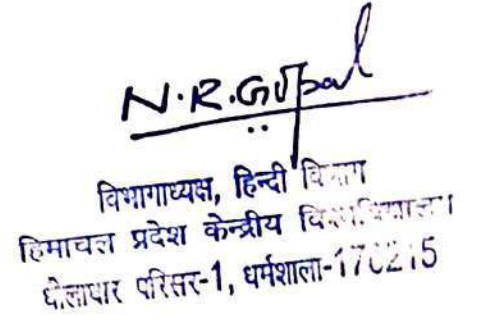 N.R.Gopal
विभागाध्यक्ष, हिन्दी विभाग
हिमाचल प्रदेश केन्द्रीय विश्वविद्यालय
धौलाधार परिसर-1, धर्मशाला-176215